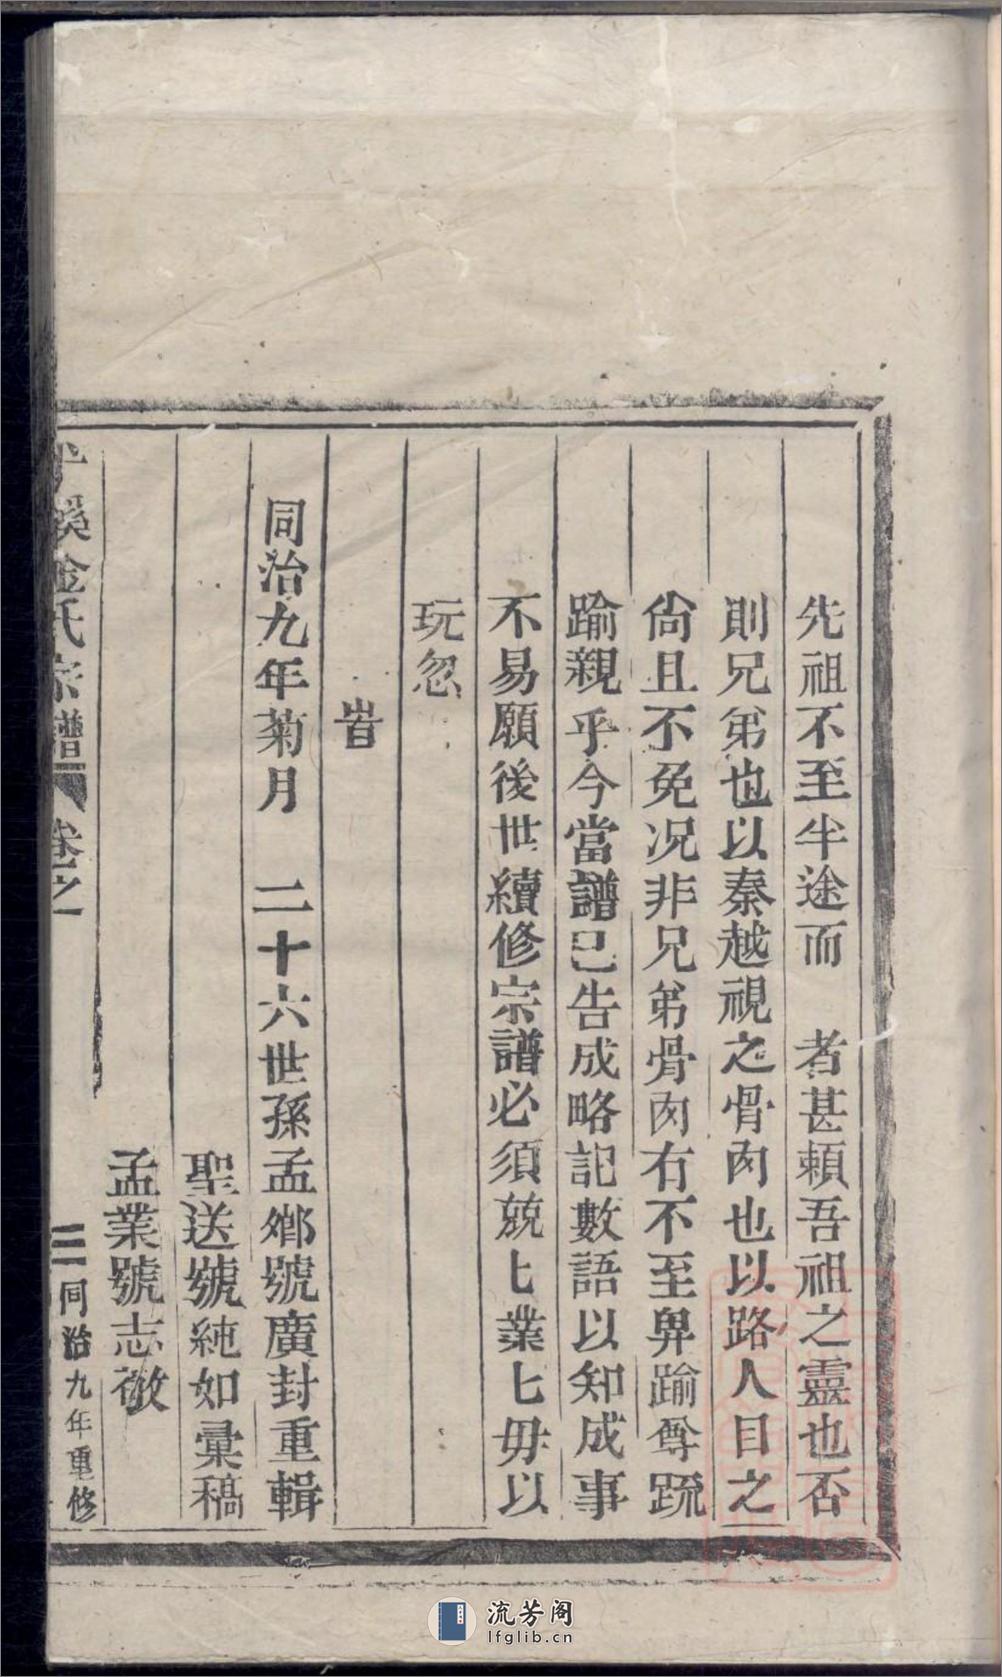 先祖不至半途而　者甚賴吾祖之靈也否
則兄弟也以秦越視之骨肉也以路人目之
尙且不免况非兄弟骨肉有不至卑踰尊䟽
踰親乎今當譜已告成略記數語以知成事
不易願後世續修宗譜必須兢匕業匕毋以
玩忽
旹
同治九年菊月　二十六世孫孟鄉號廣封重輯
聖送號純如彙稿
孟業號志敬
溪金氏宗譜　卷之一　三　同治九年重修
流芳阁
lfglib.cn